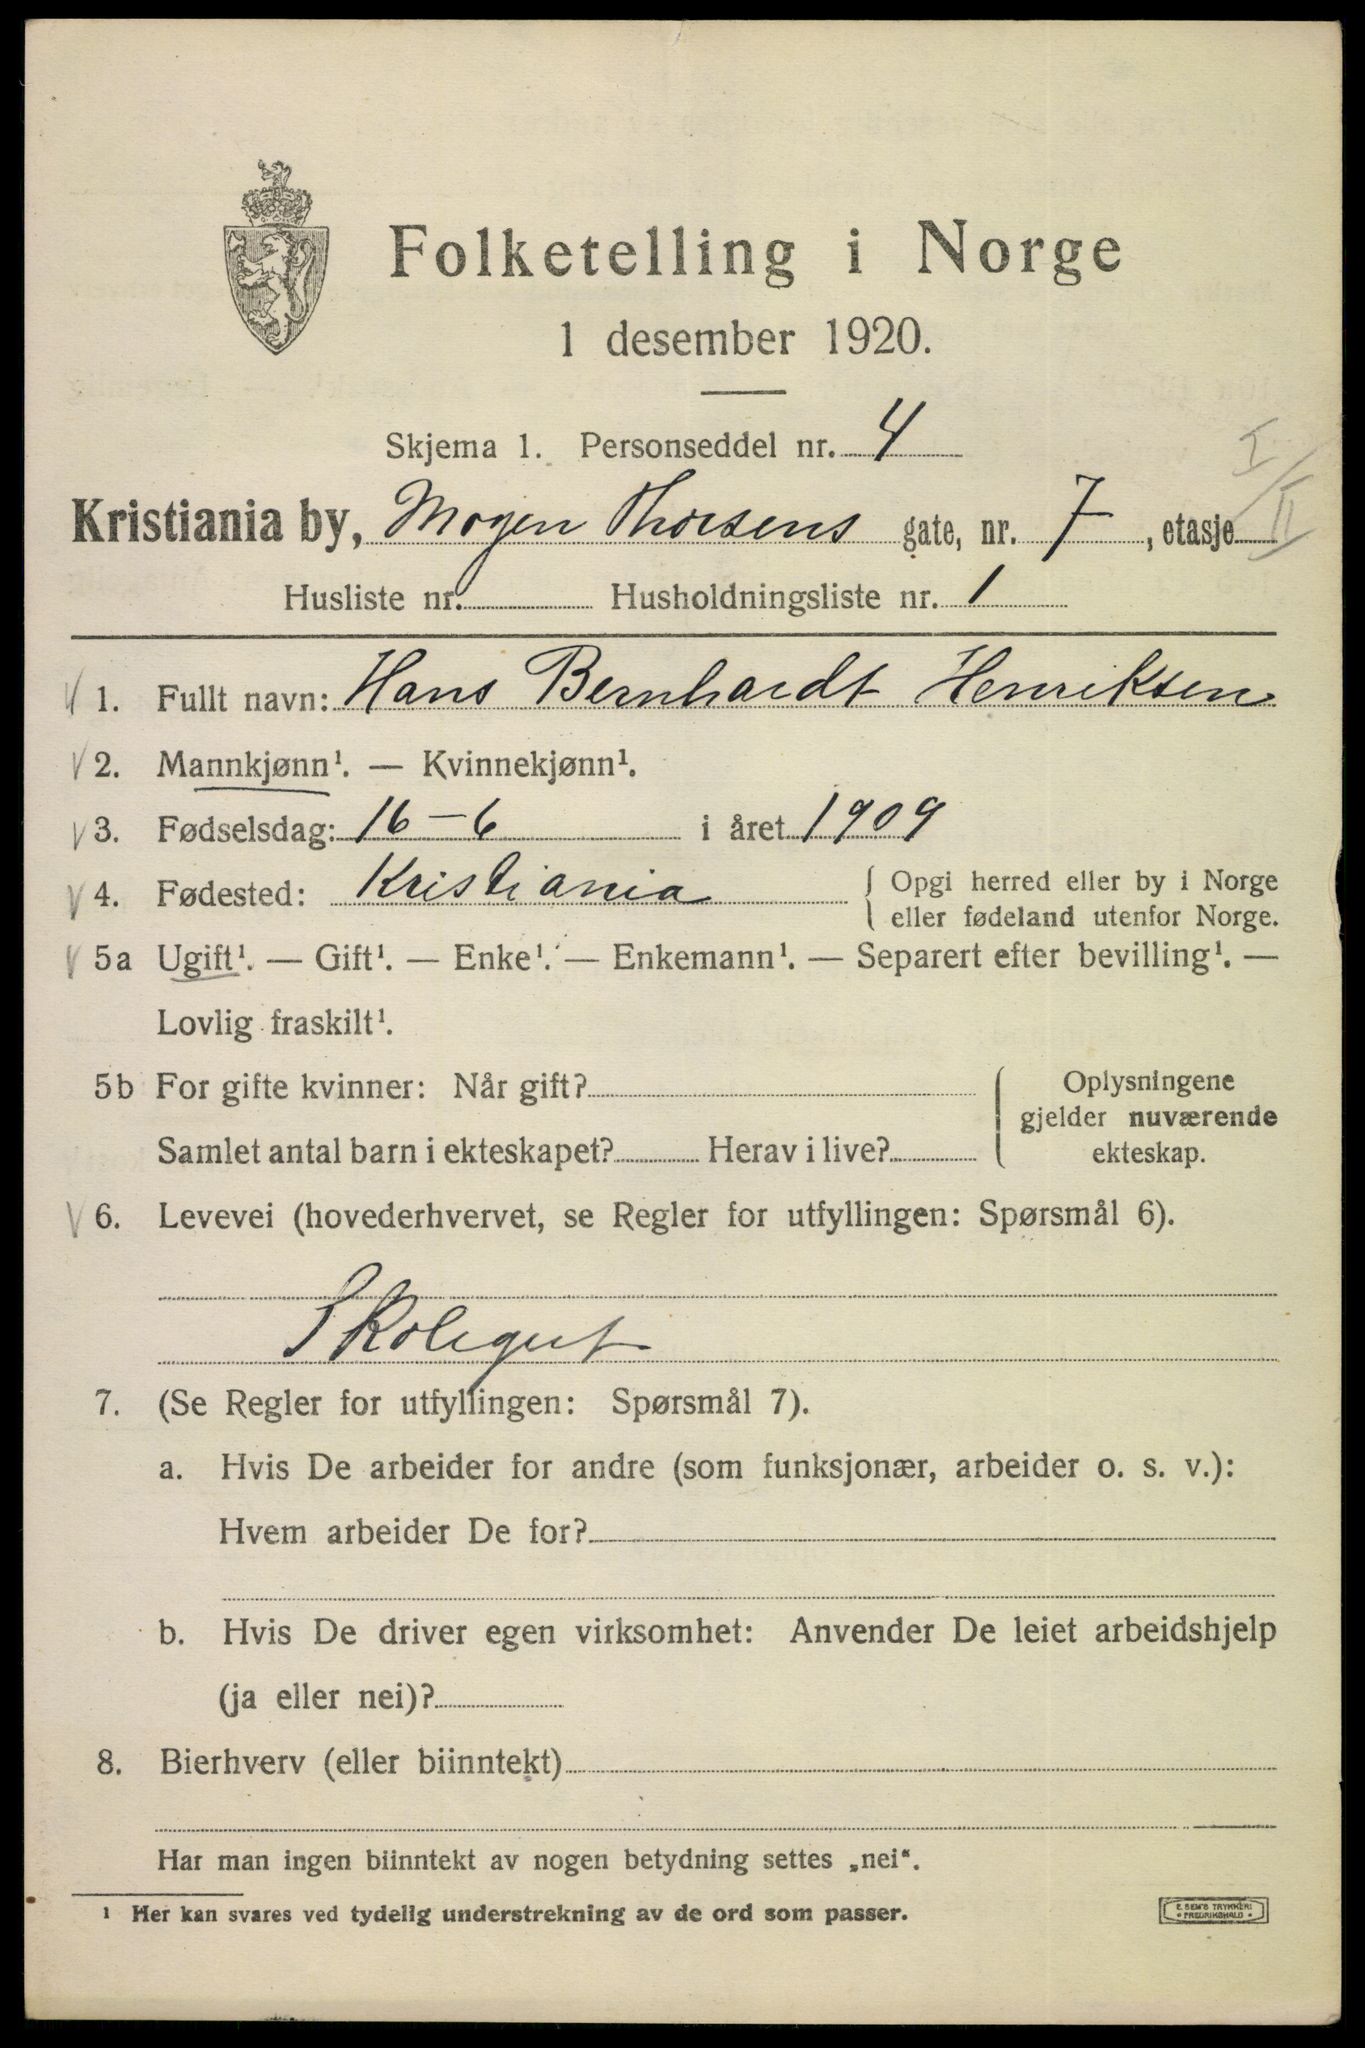 Folketelling i Norge
1 desember 1920.
Skjema 1. Personseddel nr. 4
Kristiania by, Mogen Thorsens gate, nr. 7, etasje I/II
Husliste nr. Husholdningsliste nr. 1
√ 1. Fullt navn: Hans Bernhardt Henriksen
√ 2. Mannkjønn¹. — Kvinnekjønn¹.
√ 3. Fødselsdag: 16-6 i året 1909
√ 4. Fødested: Kristiania { Opgi herred eller by i Norge
eller fødeland utenfor Norge.
√ 5a Ugift¹. — Gift¹. — Enke¹. — Enkemann¹. — Separert efter bevilling¹. —
Lovlig fraskilt¹.
5b For gifte kvinner: Når gift?
Samlet antal barn i ekteskapet? Herav i live?
{ Oplysningene
gjelder nuværende
ekteskap.
√ 6. Levevei (hovederhvervet, se Regler for utfyllingen: Spørsmål 6).
Skolegut
7. (Se Regler for utfyllingen: Spørsmål 7).
a. Hvis De arbeider for andre (som funksjonær, arbeider o. s. v.):
Hvem arbeider De for?
b. Hvis De driver egen virksomhet: Anvender De leiet arbeidshjelp
(ja eller nei)?
8. Bierhverv (eller biinntekt)
Har man ingen biinntekt av nogen betydning settes „nei“.
¹ Her kan svares ved tydelig understrekning av de ord som passer.
E. SEM'S TRYKKERI
• FREDRIKSHALD •